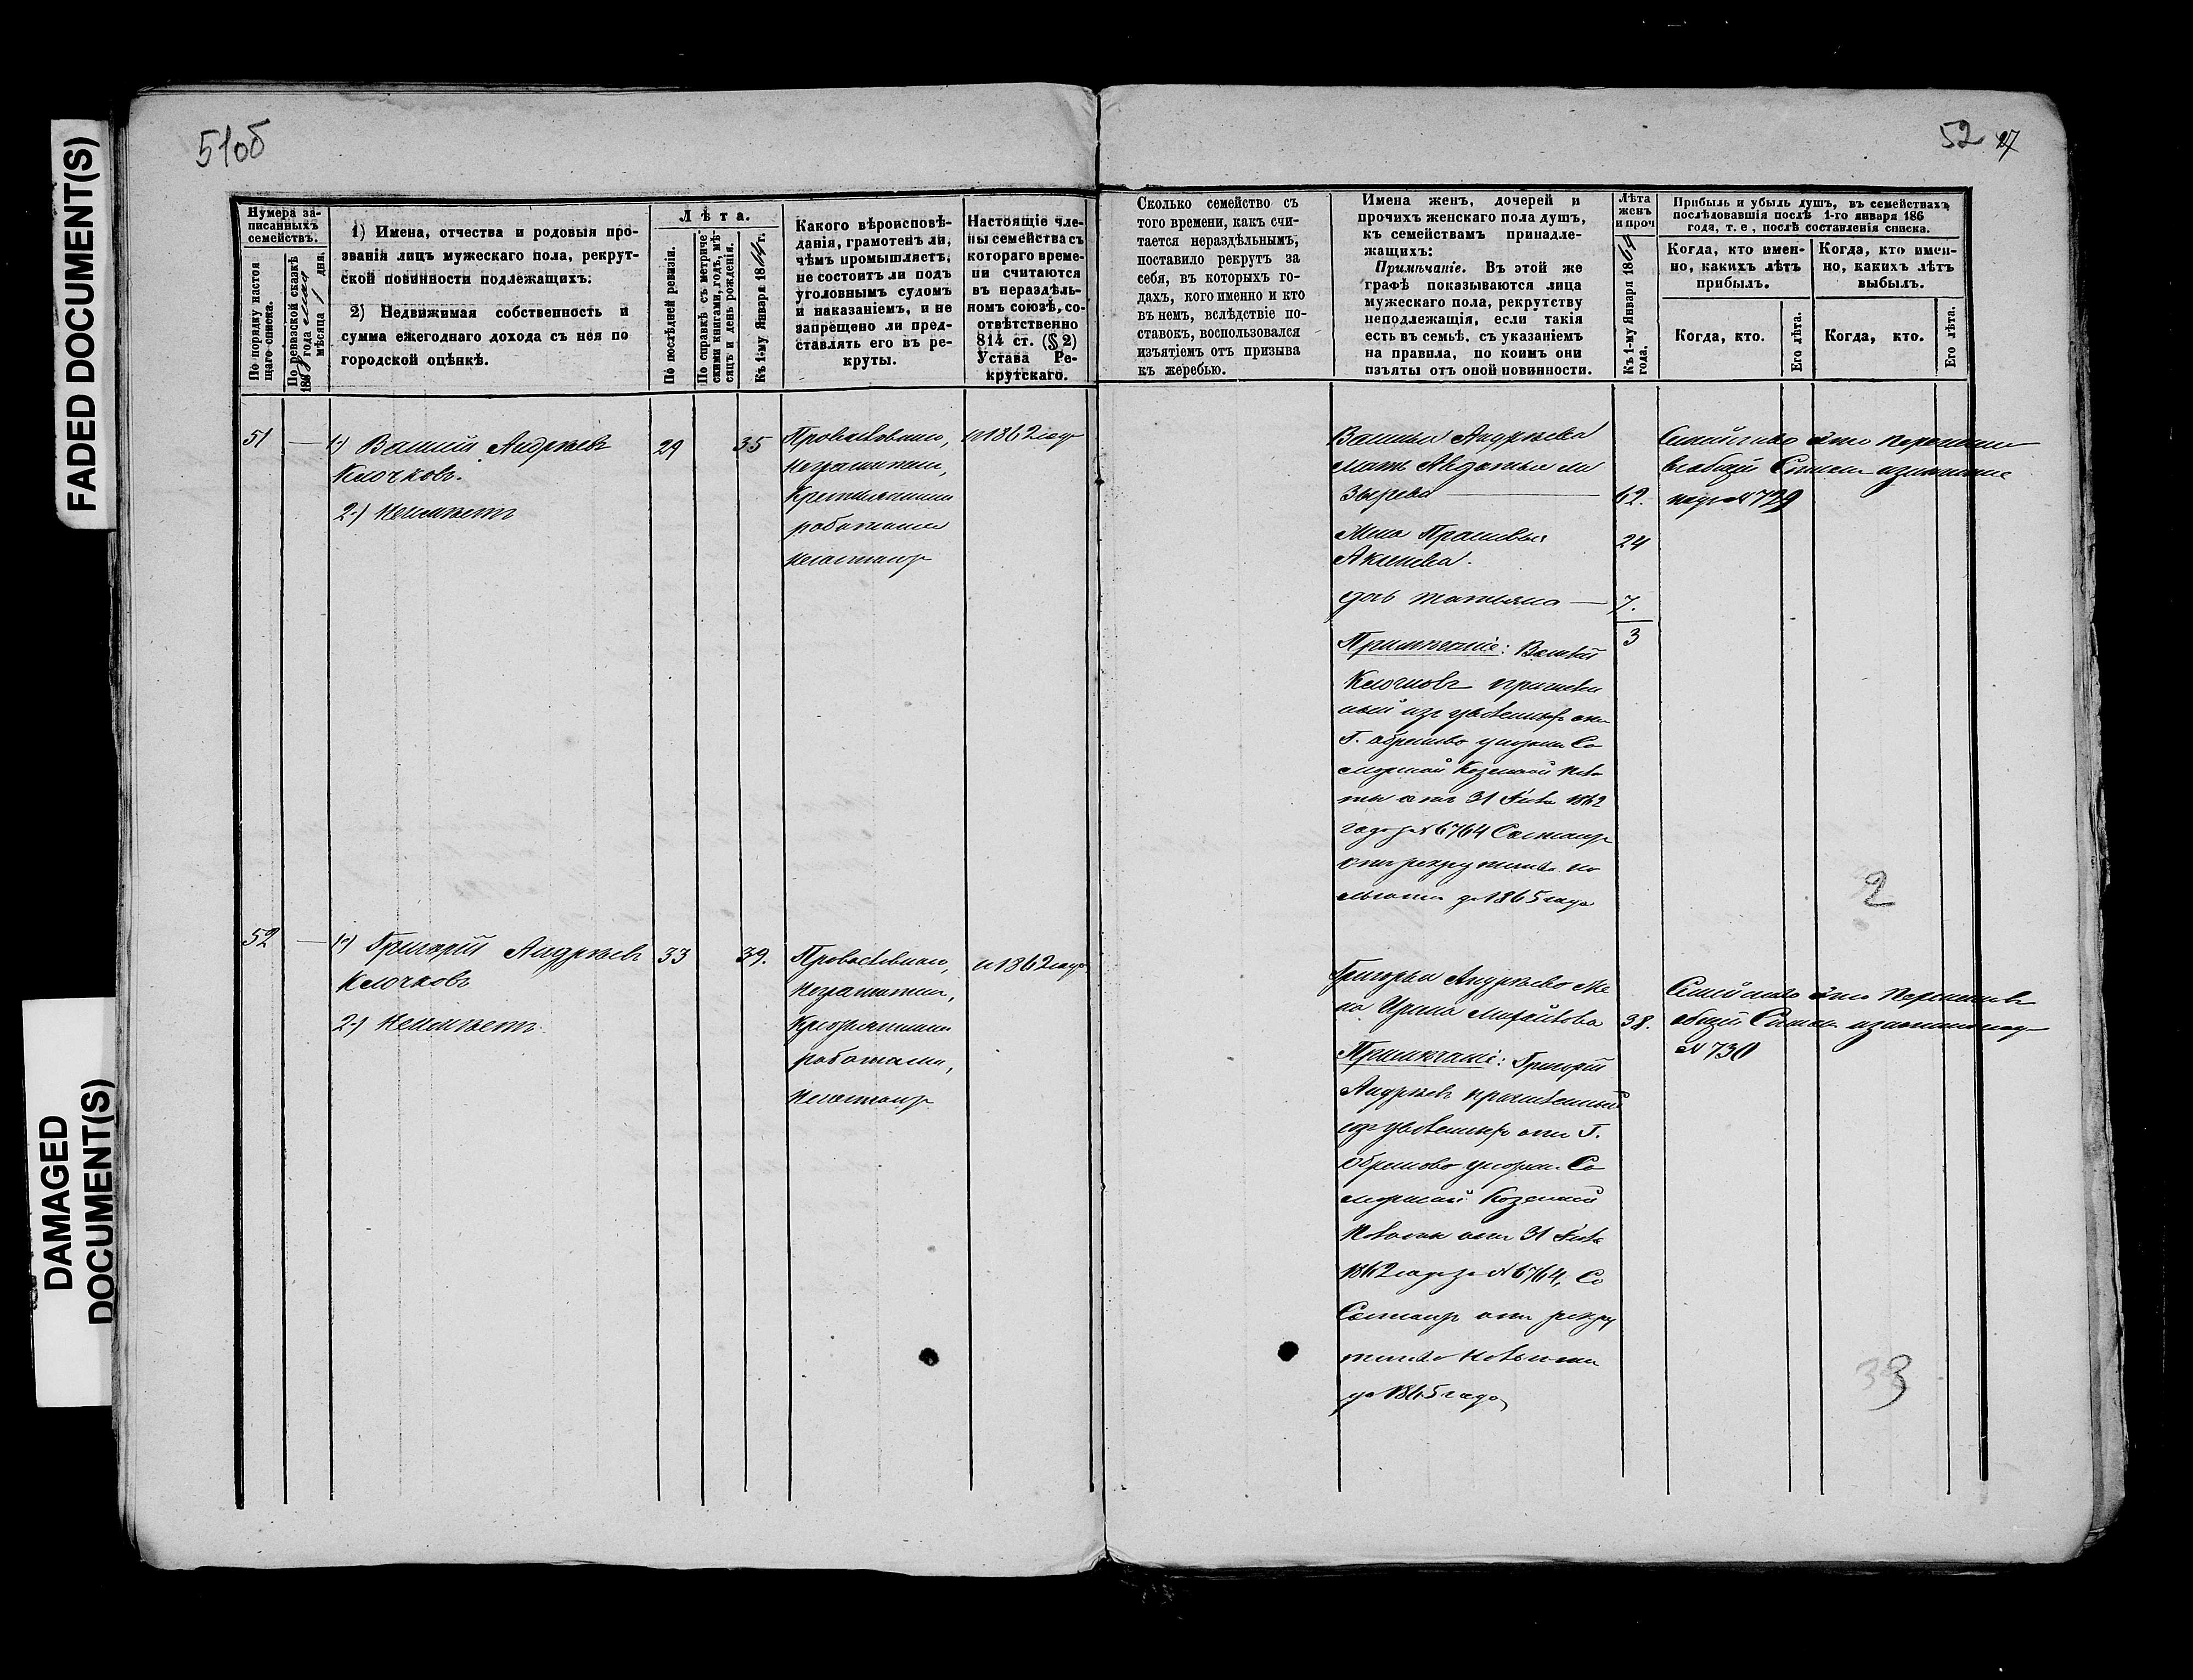 FADED DOCUMENT(S)
DAMAGED
DOCUMENT(S)
51об
Нумера за-
писанныхъ
семействъ.
По порядку настоя
щаго списка.
По ревизской сказкѣ
1858 года мая
мѣсяца 1 дня.
1) Имена, отчества и родовыя про-
званія лицъ мужескаго пола, рекрут-
ской повинности подлежащихъ.
2) Недвижимая собственность и
сумма ежегоднаго дохода съ нея по
городской оцѣнкѣ.
Лѣта.
По послѣдней ревизіи.
По справкѣ съ метриче
скими книгами, годъ, мѣ-
сяцъ и день рожденія.
Къ 1-му Января 1864 г.
Какого вѣроисповѣ-
данія, грамотенъ ли,
чѣмъ промышляетъ,
не состоитъ ли подъ
уголовнымъ судомъ
и наказаніемъ, и не
запрещено ли пред-
ставлять его въ ре-
круты.
Настоящіе чле-
ны семейства съ
котораго време-
ни считаются
въ нераздѣль-
номъ союзѣ, со-
отвѣтственно
814 ст. (§ 2)
Устава Ре-
крутскаго.
51 — 1) Василій Андреевъ 29 35
Клочковъ.
2) Неимѣетъ
Православнаго,
неграмотенъ,
крестьянскими
работами
несостоитъ
с 1862 года
52 — 1) Григорій Андреевъ 33 39.
Клочковъ
2) Неимѣетъ
Православнаго,
неграмотенъ,
крестьянскими
работами,
несостоитъ
с 1862 года
52 27
Сколько семейство съ
того времени, какъ счи-
тается нераздѣльнымъ,
поставило рекрутъ за
себя, въ которыхъ го-
дахъ, кого именно и кто
въ немъ, вслѣдствіе по-
ставокъ, воспользовался
изъятіемъ отъ призыва
къ жеребью.
Имена женъ, дочерей и
прочихъ женскаго пола душъ,
къ семействамъ принадле-
жащихъ:
Примѣчаніе. Въ этой же
графѣ показываются лица
мужескаго пола, рекрутству
неподлежащія, если такія
есть въ семьѣ, съ указаніемъ
на правила, по коимъ они
изъяты отъ оной новинности.
Лѣта
женъ
и проч
Къ 1-му Января 1864
года.
Прибыль и убыль душъ, въ семействахъ
послѣдовавшія послѣ 1-го января 186
года, т. е, послѣ составленія списка.
Когда, кто имен-
но, какихъ лѣтъ
прибылъ.
Когда, кто имен-
но, какихъ лѣтъ
выбылъ.
Когда, кто.
Его лѣта.
Когда, кто.
Его лѣта.
Василья Андреева
мать Авдотья
62.
Жена Прасковья 24
дочь Татьяна — 7.
3
Примѣчаніе: Василій
Клочковъ причислен
ный изъ
Г.
марской Казенной Пала
ты отъ 31 1862
года за № 6764 Состоитъ
от рекрутства по
льготы до 1865 года
Семейство это
общій Списокъ
подъ № 729
2
Григорья Андреева Же
на Ирина Михайлова 38.
Примѣчаніе: Григорій
Андреевъ причисленный
изъ Г.
марской Казенной
Палаты отъ 31
1862 года за № 6764, Со
Состоитъ отъ рекру
тства
до 1865 года
Семейство это
общій Списокъ
№ 730
3